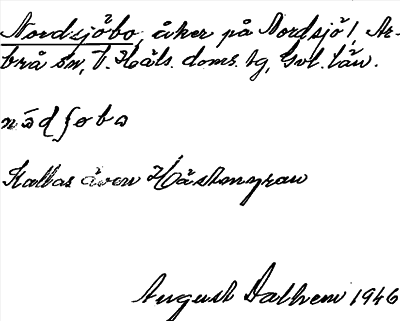 Nordsjöbo, åker på Nordsjö!, Ar-
brå sn, V. Häls. doms. tg, Gvl. län.
nǻdʃoba
Kallas även Hästmyran
August Dalhem 1946